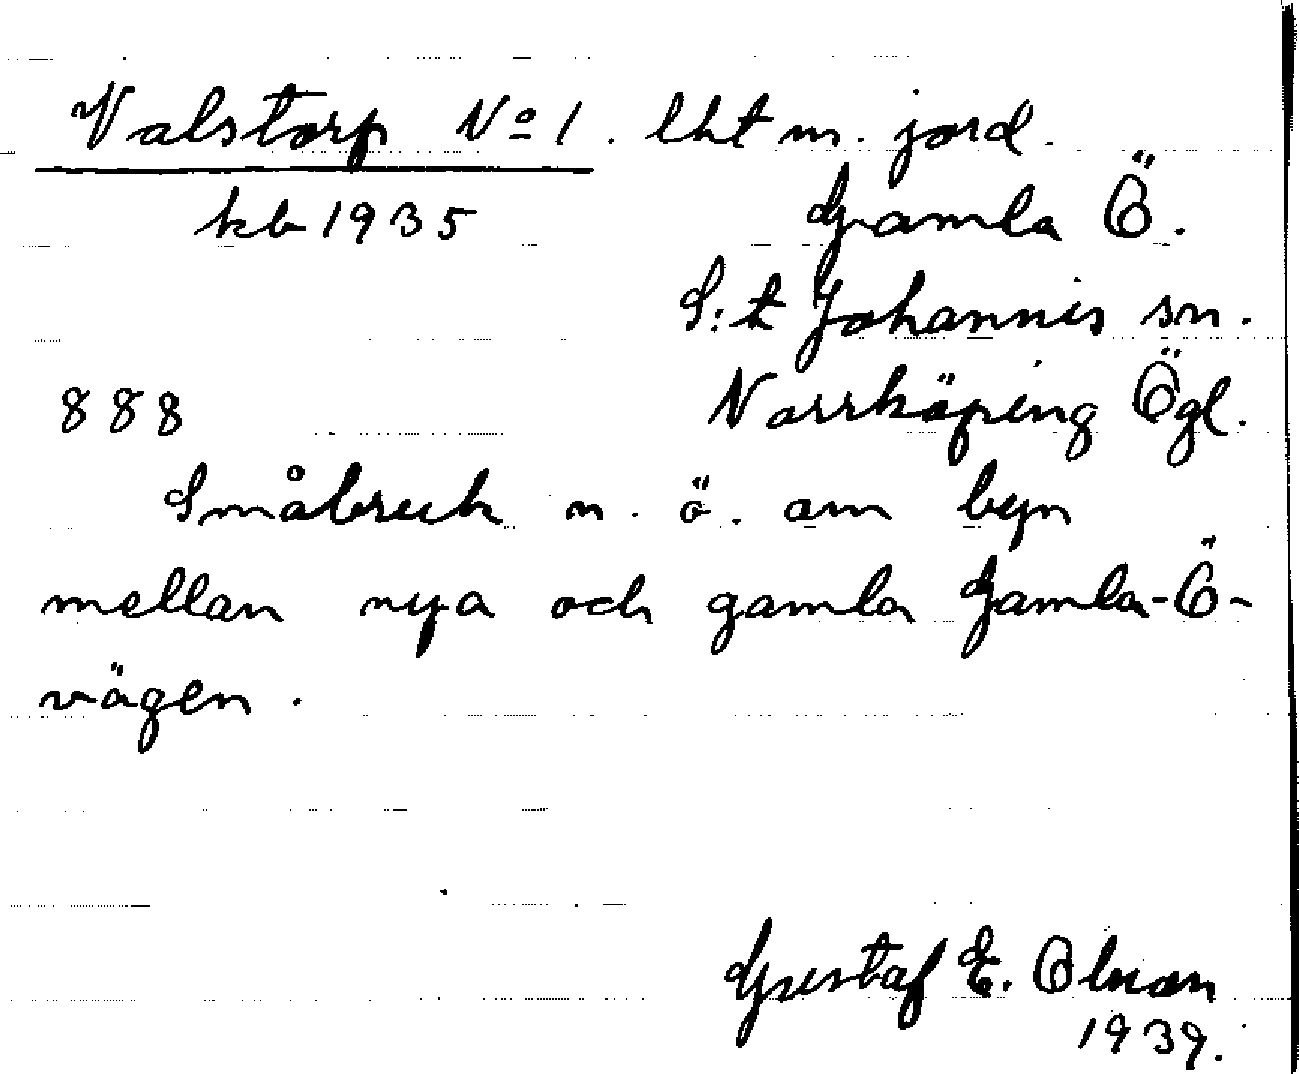 Valstorp No 1. lht m. jord.
kb 1935
Gamla Ö.
S:t Johannis sn.
888
Norrköping Ögl.
Småbruk n. ö. om byn
mellan nya och gamla Gamla-Ö-
vägen.
Gustaf E. Olsson
1939.